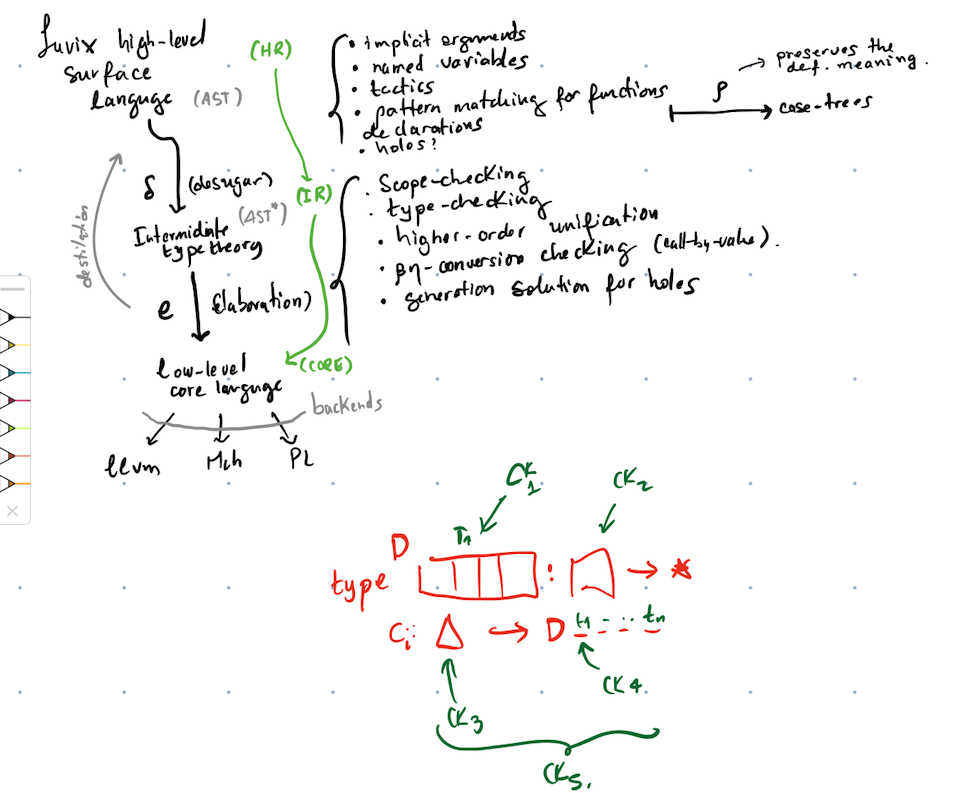 Juvix high-level
surface
languge (AST)
(HR)
• implicit arguments
• named variables
• tactics
• pattern matching for functions
declarations
• holes?
ρ
→ preserves the
def. meaning.
case-trees
δ (desugar)
(IR)
(AST*)
Intermidiate
type theory
• Scope-checking
• type-checking
• higher-order unification
• βη-conversion checking (call-by-value).
• generation solution for holes
e (elaboration)
low-level
core languge
(CORE)
backends
llvm
PL
CK1
CK2
T1
D
type : → *
Ci: Δ → D t1 - .. tn
CK3
CK4
CK5.